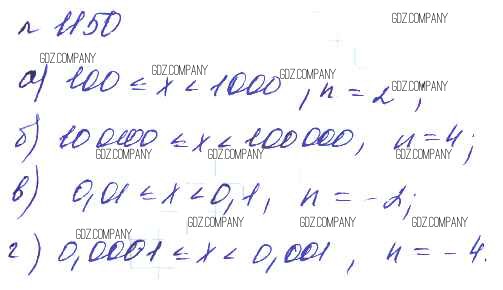 № 1150
а) 100 ≤ x < 1000, n = 2;
б) 10000 ≤ x < 100000, n = 4;
в) 0,01 ≤ x < 0,1, n = -2;
г) 0,0001 ≤ x < 0,001, n = -4.
GDZ.COMPANY
GDZ.COMPANY
GDZ.COMPANY
GDZ.COMPANY
GDZ.COMPANY
GDZ.COMPANY
GDZ.COMPANY
GDZ.COMPANY
GDZ.COMPANY
GDZ.COMPANY
GDZ.COMPANY
GDZ.COMPANY
GDZ.COMPANY